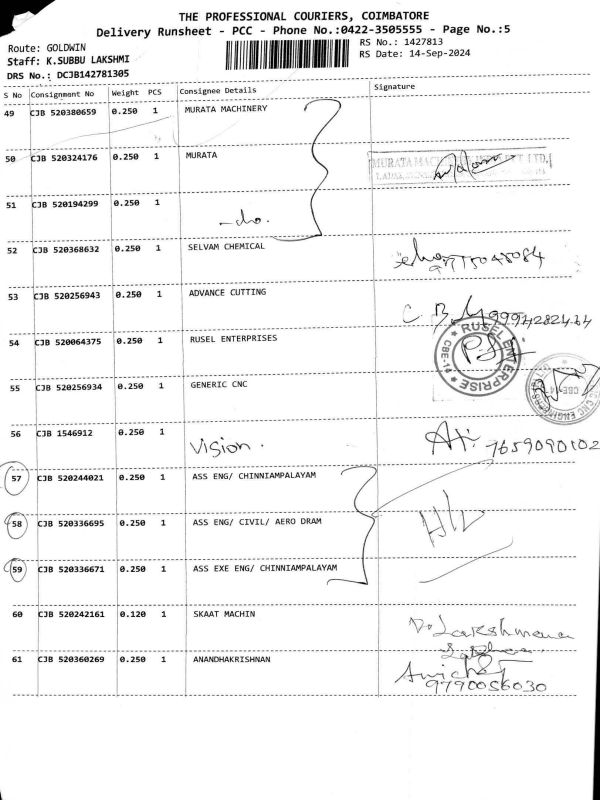 THE PROFESSIONAL COURIERS, COIMBATORE
Delivery Runsheet - PCC - Phone No.:0422-3505555 - Page No.:5
Route: GOLDWIN
Staff: K.SUBBU LAKSHMI
DRS No.: DCJB142781305
RS No.: 1427813
RS Date: 14-Sep-2024
S No Consignment No Weight PCS Consignee Details Signature
49 CJB 520380659 0.250 1 MURATA MACHINERY
50 CJB 520324176 0.250 1 MURATA
51 CJB 520194299 0.250 1
-do.
52 CJB 520368632 0.250 1 SELVAM CHEMICAL
53 CJB 520256943 0.250 1 ADVANCE CUTTING
54 CJB 520064375 0.250 1 RUSEL ENTERPRISES
RUSEL ENTERPRISE
CBE-14
55 CJB 520256934 0.250 1 GENERIC CNC
56 CJB 1546912 0.250 1 Vision. 7659090102
57 CJB 520244021 0.250 1 ASS ENG/ CHINNIAMPALAYAM
58 CJB 520336695 0.250 1 ASS ENG/ CIVIL/ AERO DRAM
59 CJB 520336671 0.250 1 ASS EXE ENG/ CHINNIAMPALAYAM
60 CJB 520242161 0.120 1 SKAAT MACHIN
61 CJB 520360269 0.250 1 ANANDHAKRISHNAN
9790056030